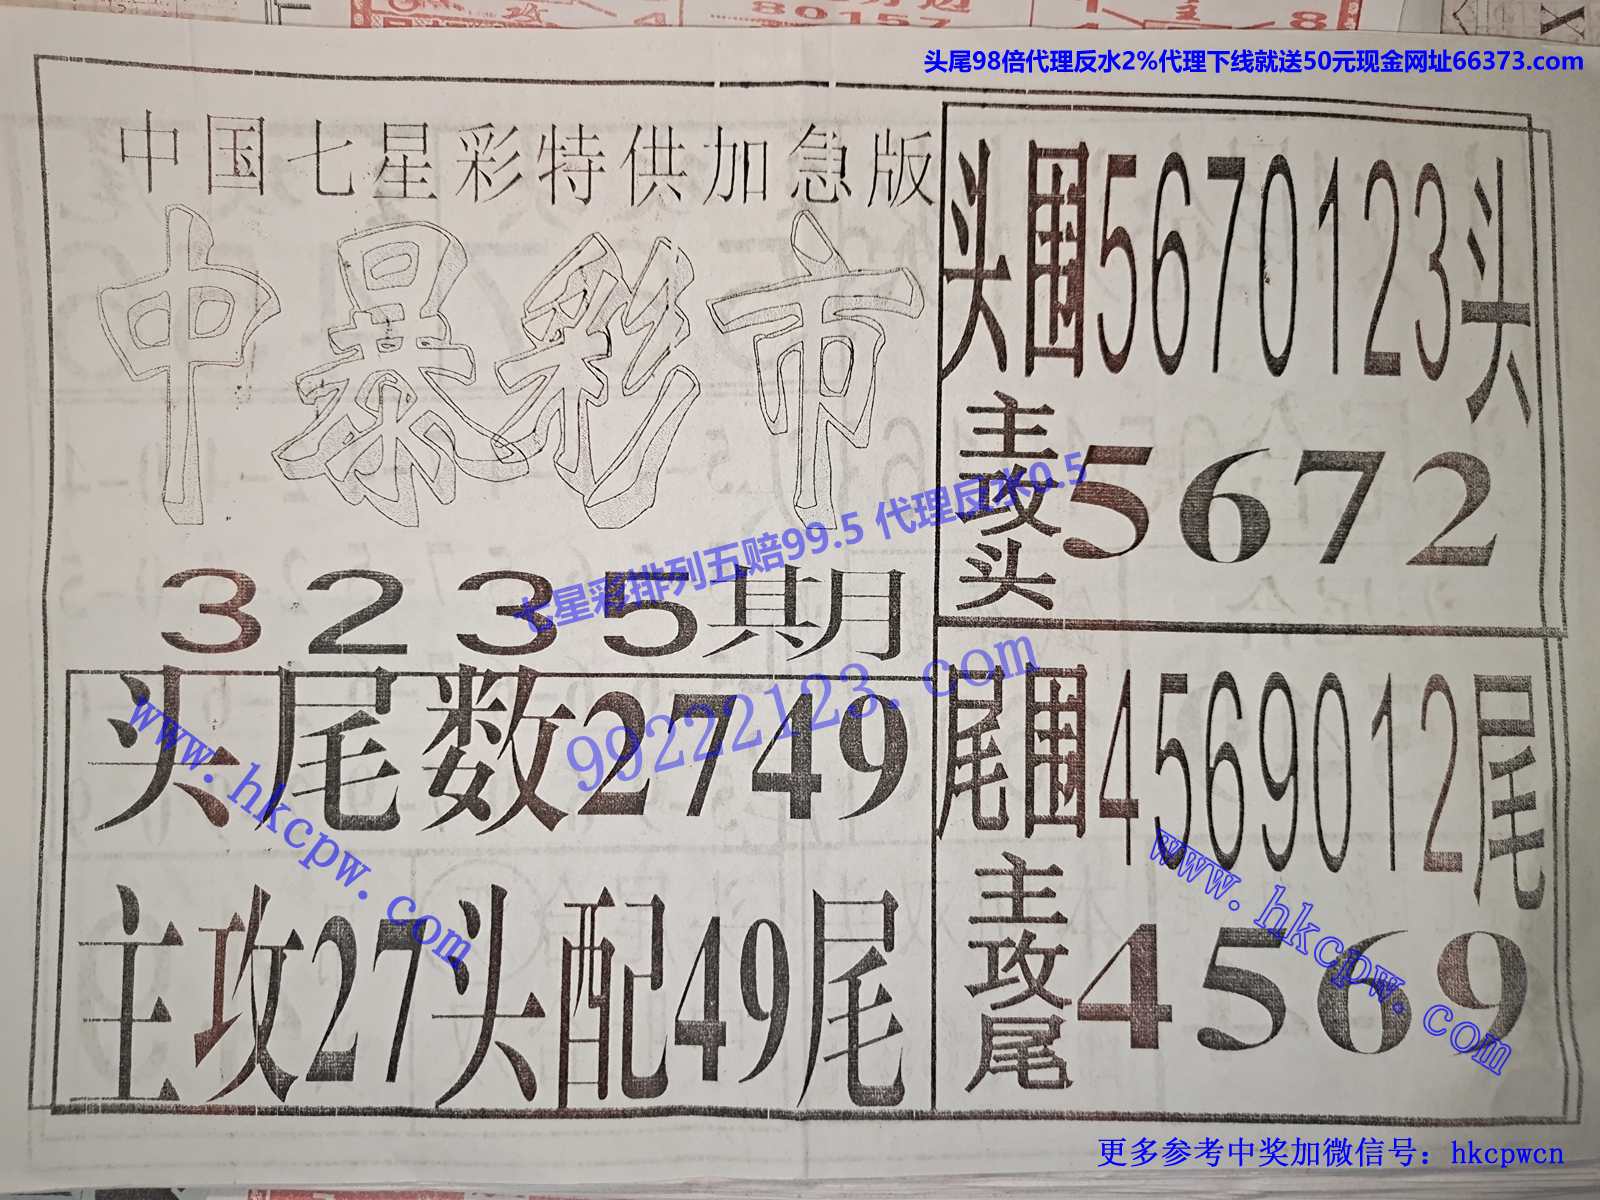 头尾98倍代理反水2%代理下线就送50元现金网址66373.com
中国七星彩特供加急版
中暴彩市
3235期
头尾数2749
主攻27头配49尾
头围5670123头
主攻头5672
尾围4569012尾
主攻尾4569
七星彩排列五赔99.5 代理反水0.5
99222123.com
www.hkcpw.com
www.hkcpw.com
更多参考中奖加微信号：hkcpwcn
80157
8